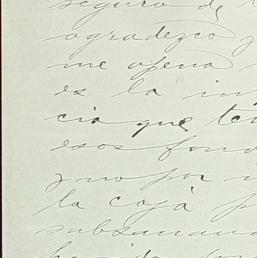 seguro de
agradezco y
me apena
es la in
cia que te
esos fond
y no por
la caja p
subsanan